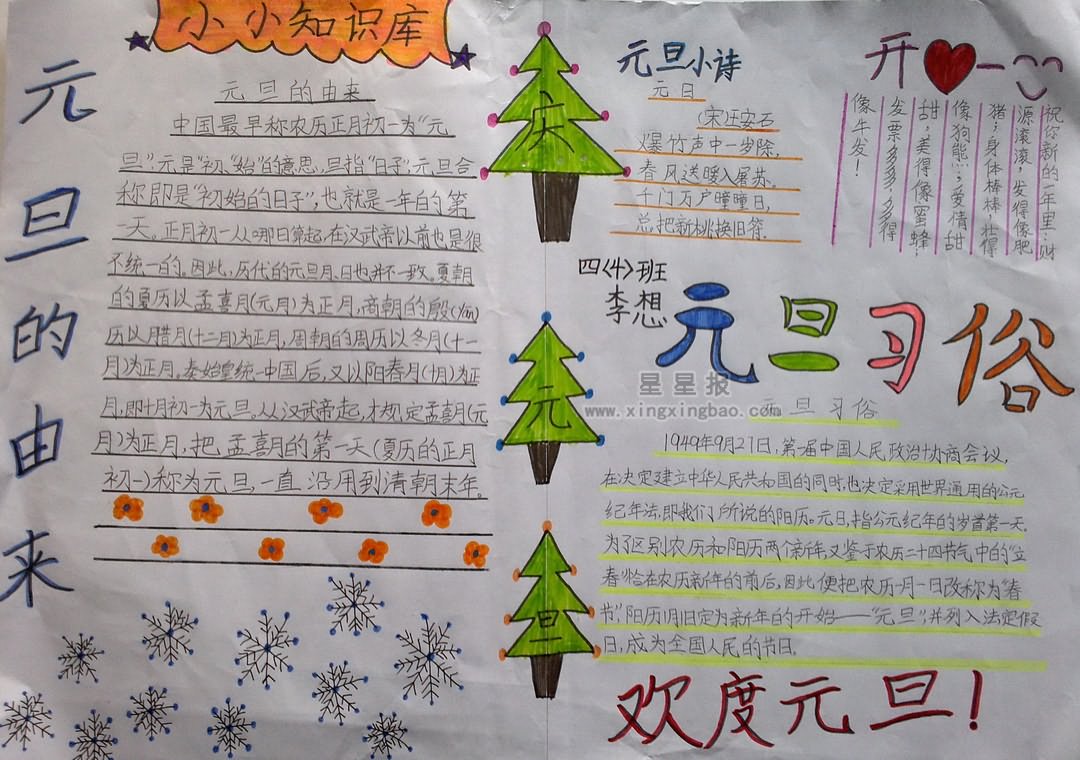 小小知识库
元旦的由来
元旦的由来
中国最早称农历正月初一为“元
旦”元是“初”“始”的意思,旦指“日子”,元旦合
称即是“初始的日子”,也就是一年的第
一天。正月初一从哪日算起,在汉武帝以前也是很
不统一的。因此,历代的元旦月、日也并不一致。夏朝
的夏历以孟喜月(元月)为正月,商朝的殷(yān)
历以腊月(十二月)为正月,周朝的周历以冬月(十一
月)为正月。秦始皇统一中国后,又以阳春月(十月)为正
月,即十月初一为元旦,从汉武帝起,才规定孟喜月(元
月)为正月,把孟喜月的第一天(夏历的正月
初一)称为元旦,一直沿用到清朝末年。
庆
元
旦
元旦小诗
元日
(宋)王安石
爆竹声中一岁除,
春风送暖入屠苏。
千门万户曈曈日,
总把新桃换旧符。
四(4)班
李想
开一
祝你新的一年里:财
源滚滚,发得像肥
猪;身体棒棒,壮得
像狗熊;爱情甜
甜,美得像蜜蜂;
发票多多,多得
像牛发!
元旦习俗
星星报
www.xingxingbao.com
元旦习俗
1949年9月27日,第一届中国人民政治协商会议,
在决定建立中华人民共和国的同时,也决定采用世界通用的公元
纪年法,即我们所说的阳历。元旦,指公元纪年的岁首第一天。
为了区别农历和阳历两个新年,又鉴于农历二十四节气中的“立
春”恰在农历新年的前后,因此便把农历一月一日改称为“春
节”阳历1月1日定为新年的开始——“元旦”,并列入法定假
日,成为全国人民的节日。
欢度元旦!